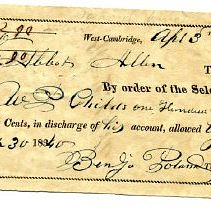 2.00 West-Cambridge, Apl 3
.00 Abbot Allen T
By order of the Sele
W Childs one Hundred
Cents, in discharge of his account, allowed
30 1840
Benj. Poland T